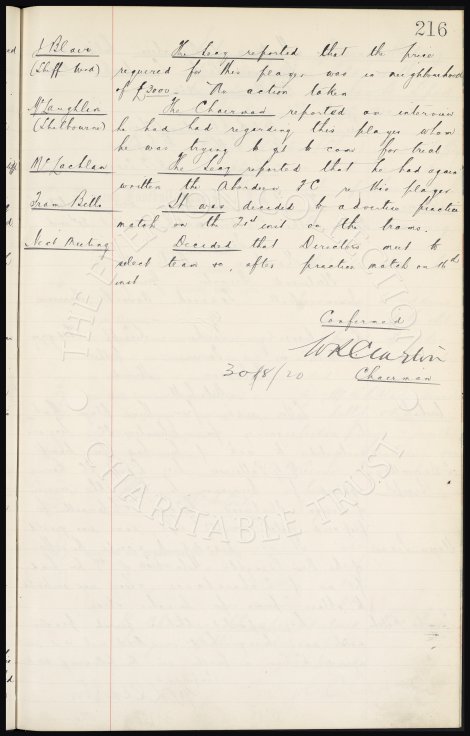 216
J Blair The Secy reported that the price
(Sheff Wed) required for this player was in neighbourhood
of £3000 - No action taken
McLaughlin The Chairman reported an interview
(Shelbourne) he had had regarding this player whom
he was trying to get to come for trial
McLachlan The Secy reported that he had again
written the Aberdeen F C re this player
Tram Bills It was decided to advertise practice
match on the 21st inst on the trams.
Next Meeting Decided that Directors meet to
select team &c, after practice match on the
inst
Confirmed
30/8/20
Chairman
CHARITABLE TRUST